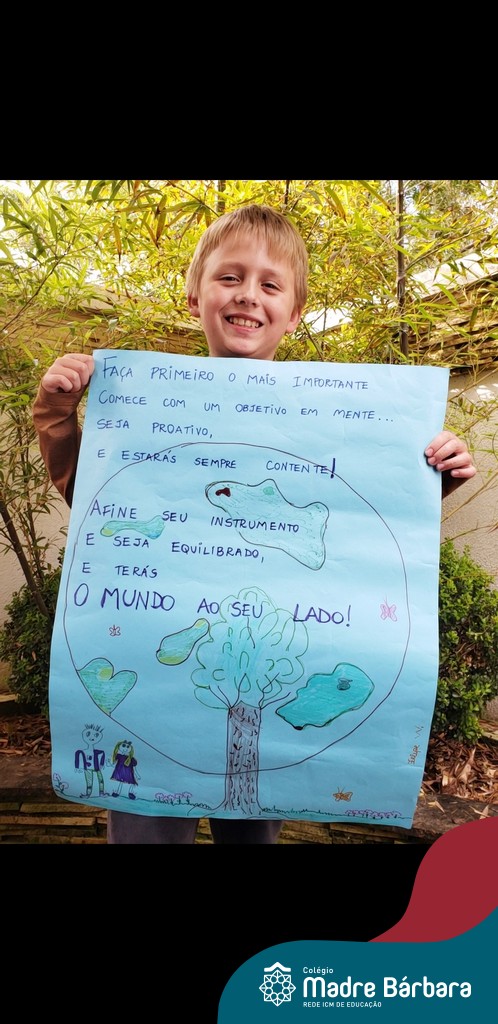 FAÇA PRIMEIRO O MAIS IMPORTANTE
COMECE COM UM OBJETIVO EM MENTE...
SEJA PROATIVO,
E ESTARÁS SEMPRE CONTENTE!
AFINE SEU INSTRUMENTO
E SEJA EQUILIBRADO,
E TERÁS
O MUNDO AO SEU LADO!
Felipe V.
Colégio
Madre Bárbara
REDE ICM DE EDUCAÇÃO